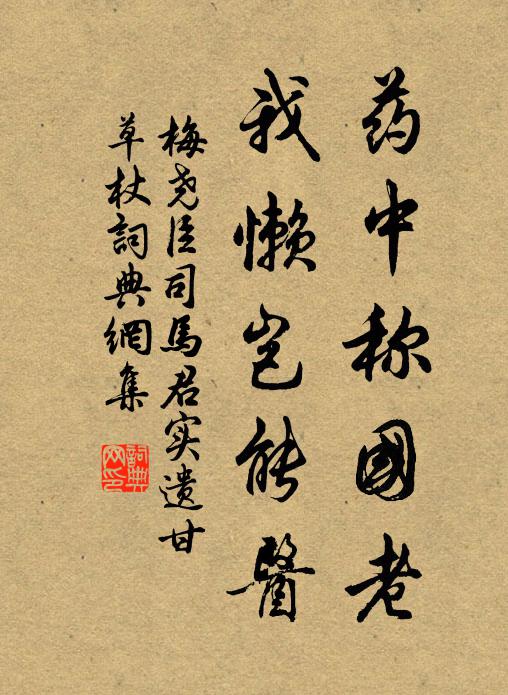 药中称國老
我懒岂能醫
梅尧臣司馬君实遗甘
草杖詞典網集
詞典
网印